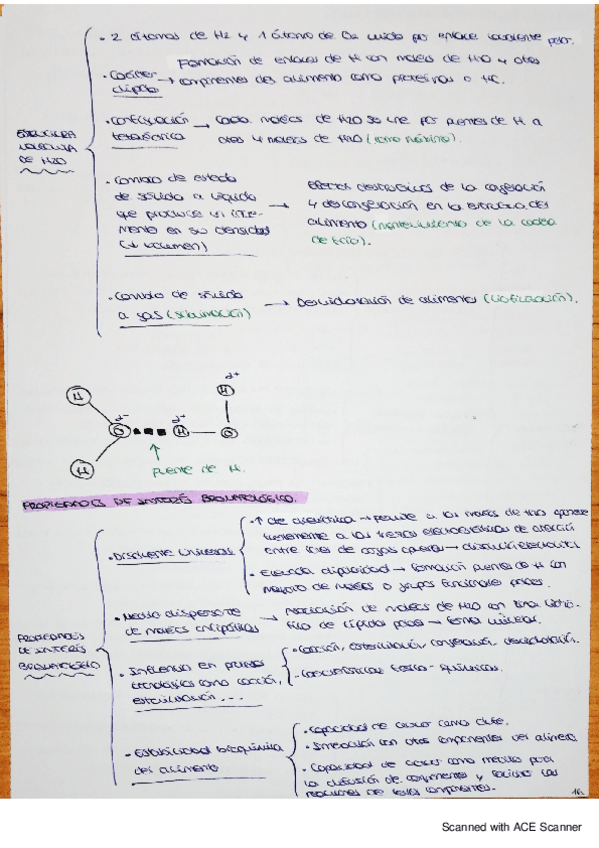 - 2 átomos de H2 y 1 átomo de O2 unido por enlace covalente polar.
Formación de enlaces de H con molécs de H2O y otros
- Carácter → componentes del alimento como proteínas o HC.
dipolo
- Configuración → Cada molécs de H2O se une por puentes de H a
tetraédrica otras 4 molécs de H2O (como máximo).
ESTRUCTURA
MOLECULA
DE H2O
- Cambio de estado
de sólido a líquido
que produce un incre-
mento en su densidad
(↓ volumen)
→ Efectos destructivos de la congelación
y descongelación en la estructura del
alimento (mantenimiento de la cadena
de frío).
- Cambio de sólido → Deshidratación de alimento (liofilización).
a gas (sublimación)
H
O
H
H
O
H
δ-
δ+
δ+
puente de H.
PROPIEDADES DE INTERÉS BROMATOLÓGICO.
PROPIEDADES
DE INTERÉS
BROMATOLÓGICO
- Disolvente universal
- ↑ cte dieléctrica → permite a las molécs de
a las fuerzas electrostáticas de atracción
entre iones de cargas opuestas → disolución electrolitos
- Elevada dipolaridad → Formación puentes de H con
mayoría de molécs o grupos funcionales polares.
- Medio dispersante
de molécs anfipáticas
→ Asociación de molécs de H2O con zona hidro-
fílica de lípidos polares → forma micelas.
- Influencia en procesos
tecnológicos como cocción,
esterilización...
- Cocción, esterilización, congelación, deshidratación.
- Características físico-químicas.
- Estabilidad bioquímica
del alimento
- Capacidad de actuar como dilte.
- Interacción con otros componentes del alimento
- Capacidad de actuar como medio para
la difusión de componentes y facilitar las
reacciones de estos componentes.
16.
Scanned with ACE Scanner